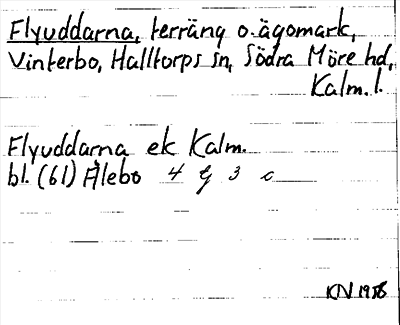 Flyuddarna, terräng o. ägomark,
Vinterbo, Halltorps sn, Södra Möre hd,
Kalm. l.
Flyuddarna ek Kalm.
bl. (61) Ålebo 4 G 3 c
KN 1956